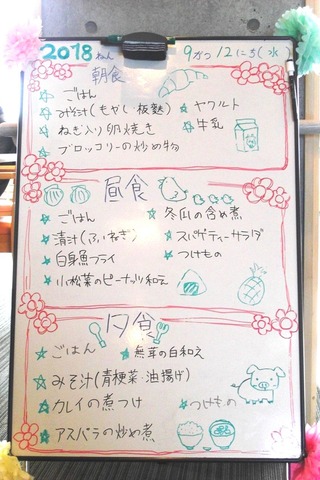 2018ねん 9がつ12にち(水)
朝食
ごはん
みそ汁(もやし・板麩) ヤクルト
ねぎ入り卵焼き 牛乳
ブロッコリーの炒め物
昼食
ごはん 冬瓜の含め煮
清汁(ふ・ねぎ) スパゲティーサラダ
白身魚フライ つけもの
小松菜のピーナッツ和え
夕食
ごはん 無茸の白和え
みそ汁(青梗菜・油揚げ)
カレイの煮つけ つけもの
アスパラの炒め煮